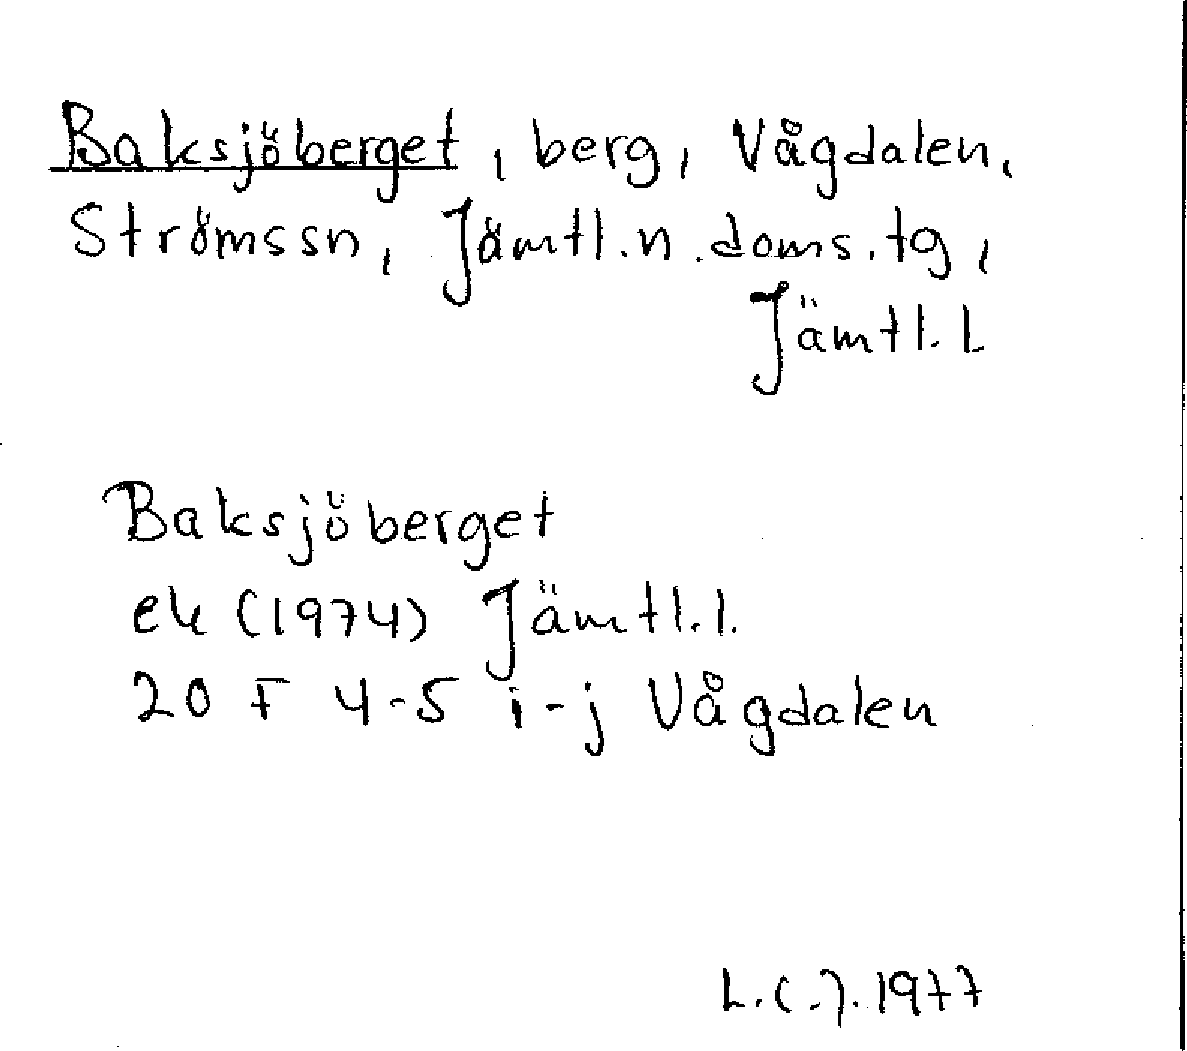 Baksjöberget, berg, Vågdalen,
Strömssn, Jämtl.n.doms.tg,
Jämtl.L
Baksjöberget
ek (1974) Jämtl.l.
20 F 4-5 i-j Vågdalen
L.C.J. 1977